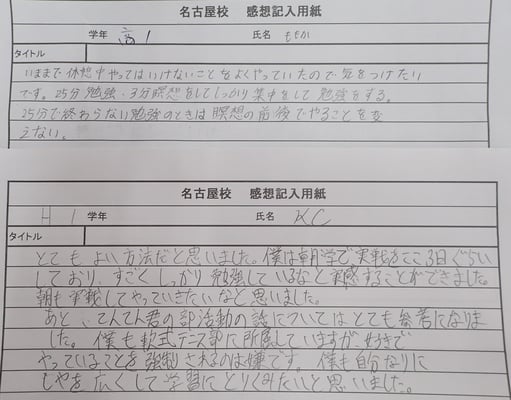 名古屋校 感想記入用紙
高1 学年 氏名 ももか
タイトル
いままで休憩中やってはいけないことをよくやっていたので気をつけたい
です。25分勉強・3分瞑想をしてしっかり集中をして勉強をする。
25分で終わらない勉強のときは瞑想の前後でやることを変
えない。
名古屋校 感想記入用紙
H1 学年 氏名 KC
タイトル
とてもよい方法だと思いました。僕は朝学で実戦をここ3日ぐらい
しており、すごくしっかり勉強しているなと実感することができました。
朝も実戦してやっていきたいなと思いました。
あと、てんてん君の部活動の話についてはとても参考になりま
した。僕も軟式テニス部に所属していますが、好きで
やっていることを強制されるのは嫌です。僕も自分なりに
しやを広くして学習にとりくみたいと思いました。